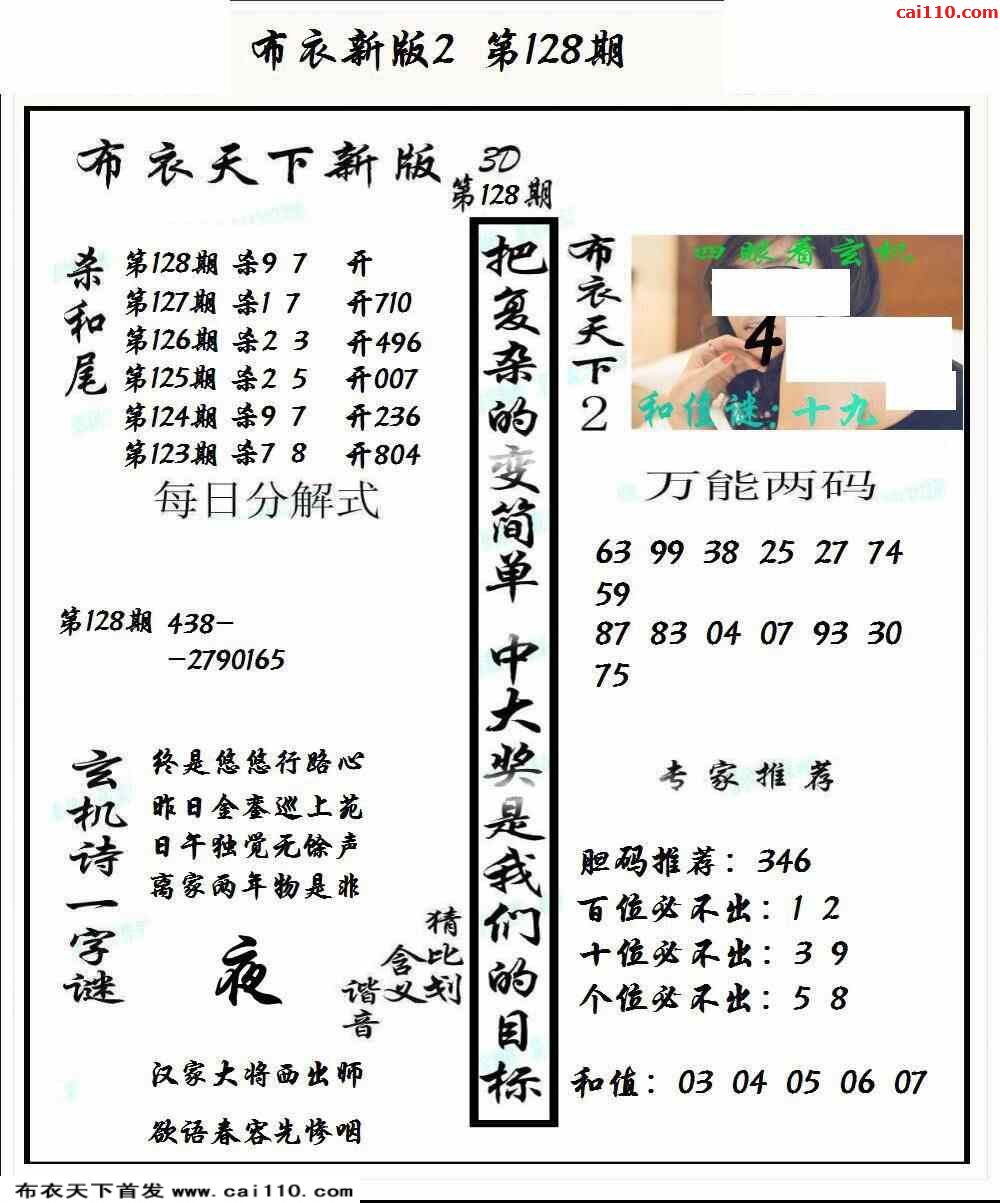 cai110.com
布衣新版2 第128期
布衣天下新版
3D
第128期
杀和尾
第128期 杀9 7 开
第127期 杀1 7 开710
第126期 杀2 3 开496
第125期 杀2 5 开007
第124期 杀9 7 开236
第123期 杀7 8 开804
每日分解式
第128期 438-
-2790165
玄机诗一字谜
终是悠悠行路心
昨日金銮巡上苑
日午独觉无馀声
离家两年物是非
夜
猜比划
含义
谐音
汉家大将西出师
欲语春容先惨咽
把复杂的变简单 中大奖是我们的目标
布衣天下2
四眼看玄机
4
和值谜:十九
万能两码
63 99 38 25 27 74
59
87 83 04 07 93 30
75
专家推荐
胆码推荐：346
百位必不出：1 2
十位必不出：3 9
个位必不出：5 8
和值：03 04 05 06 07
布衣天下首发 www.cai110.com